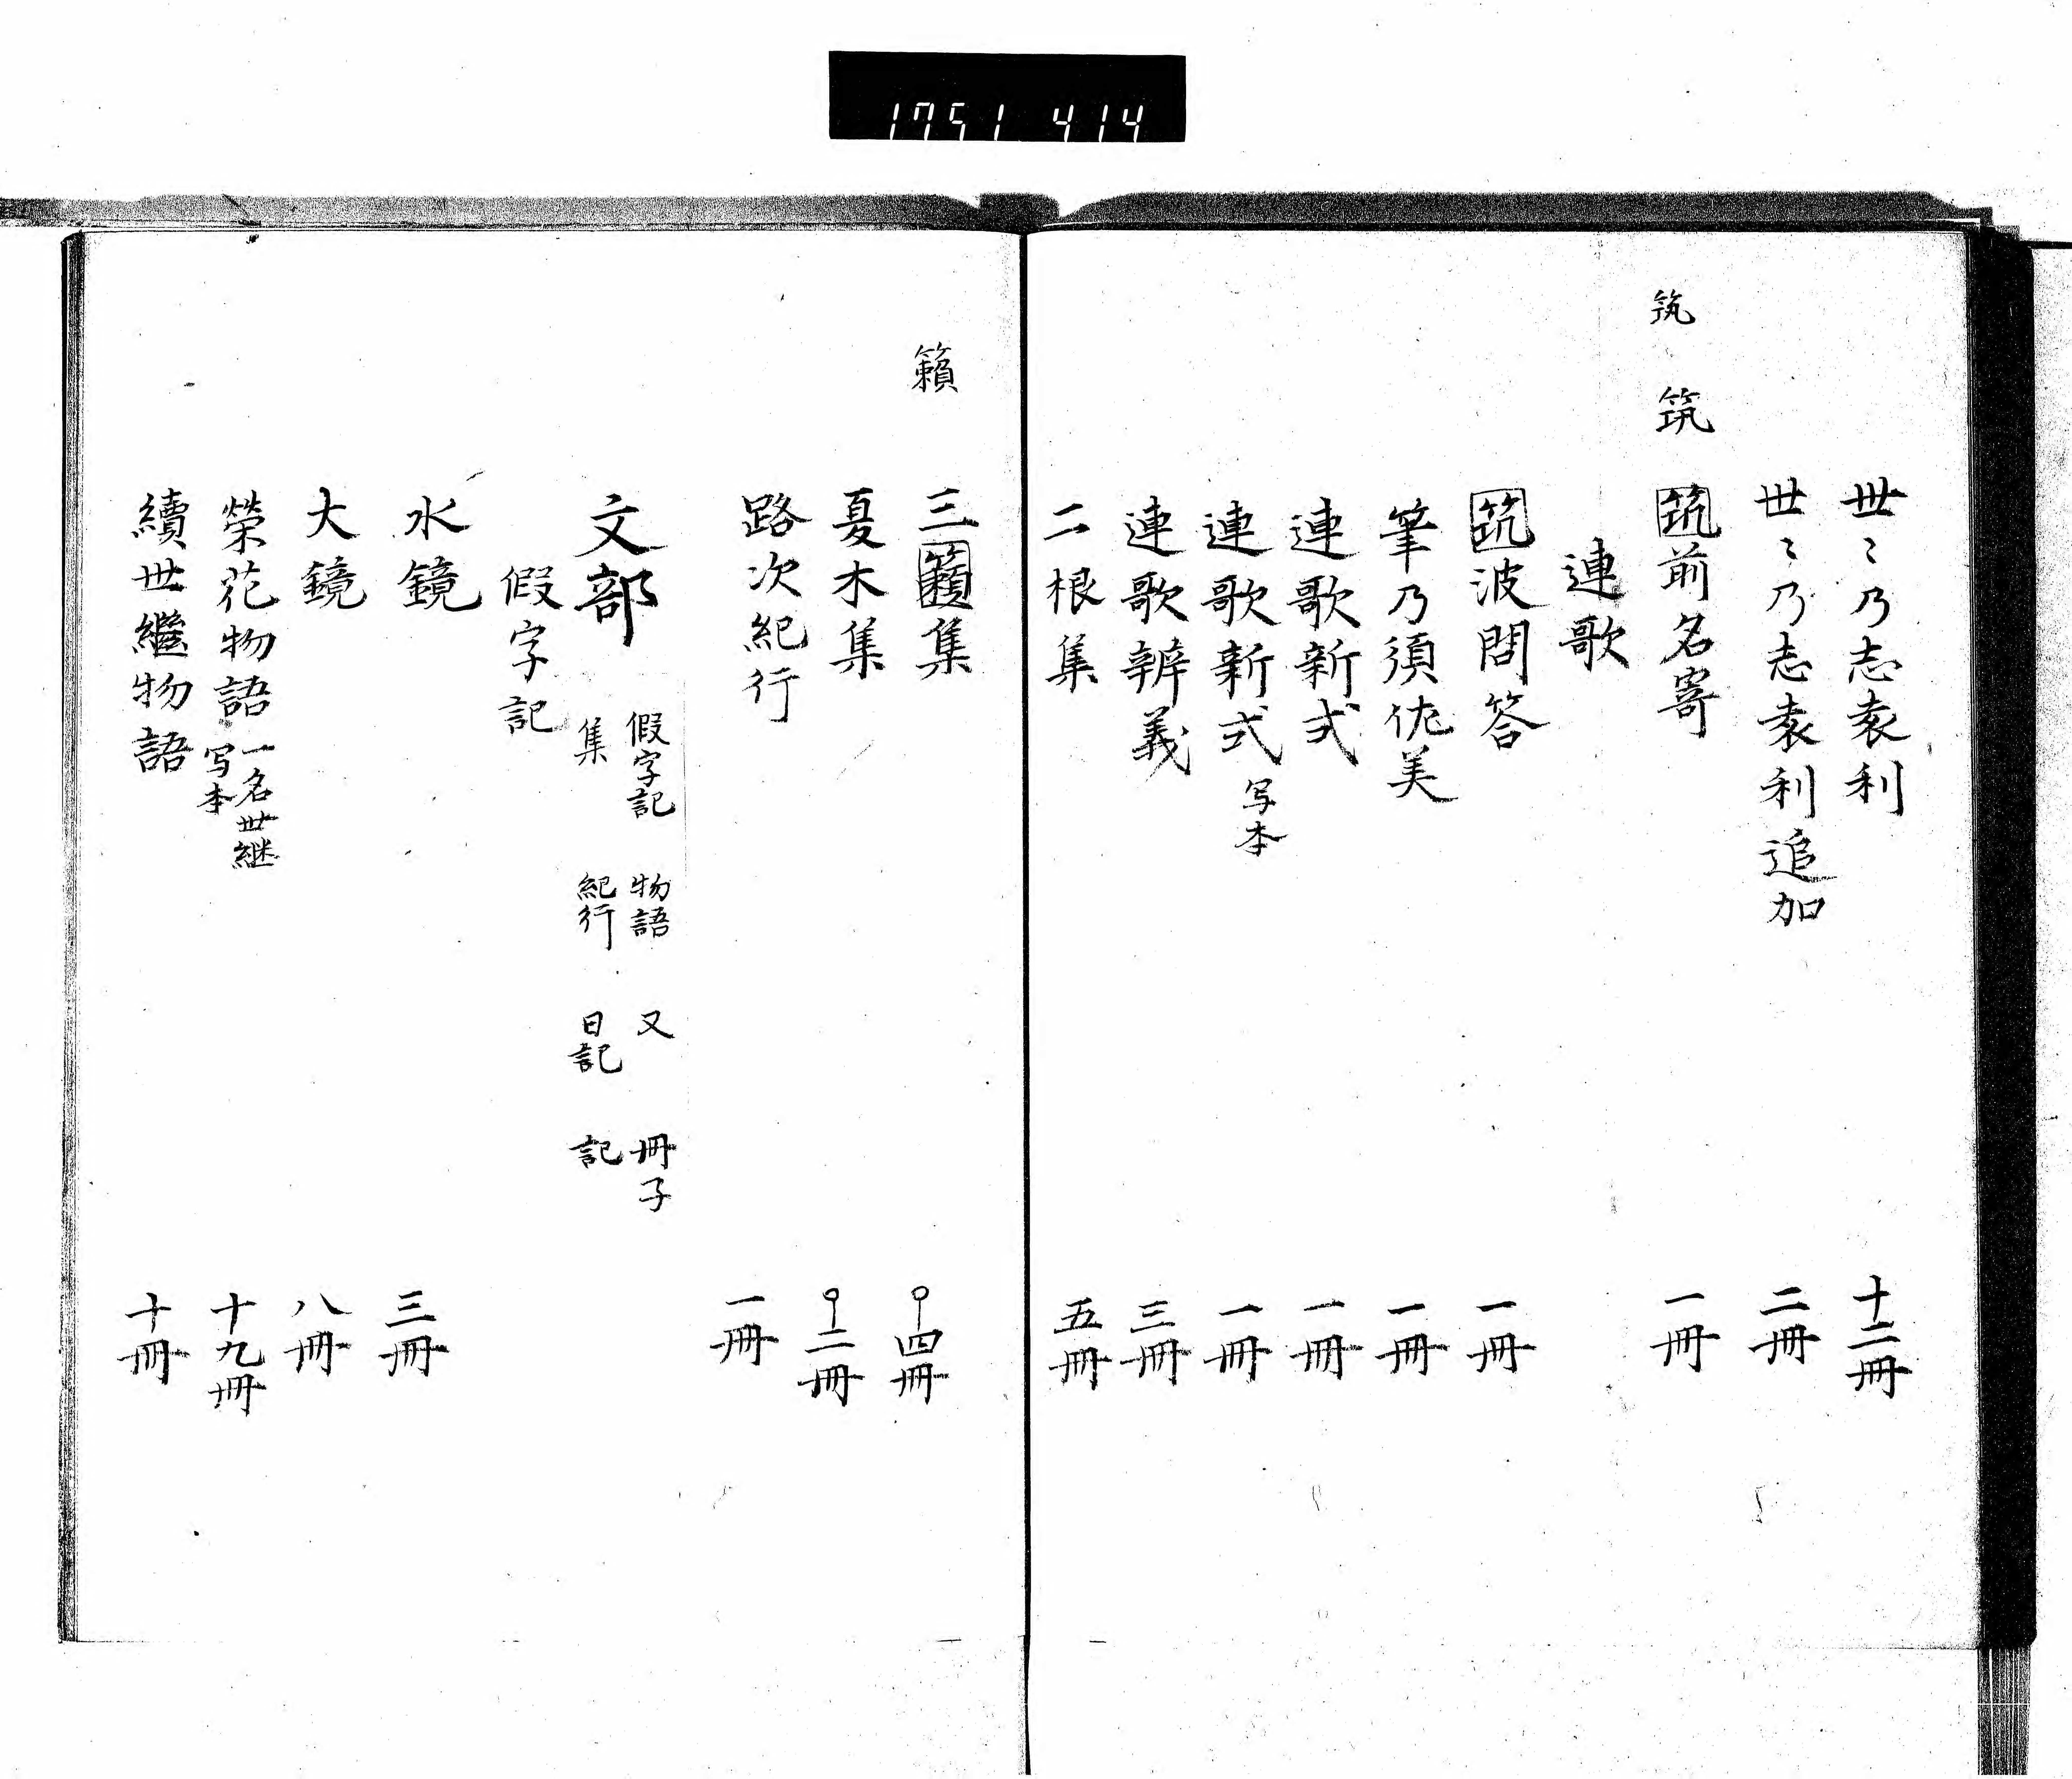 1751 414
世〻乃志袁利 十二冊
世〻乃志袁利追加 二冊
筑 筑
筑前名寄 一冊
連歌
筑波問答 一冊
筆乃須佐美 一冊
連歌新式 一冊
連歌新式 写本 一冊
連歌辨義 三冊
二根集 五冊
籟
三籟集 四冊
夏木集 二冊
路次紀行 一冊
文部
假字記 物語 又 冊子
集 紀行 日記 記
假字記
水鏡 三冊
大鏡 八冊
榮花物語 一名世継 写本 十九冊
續世繼物語 十冊